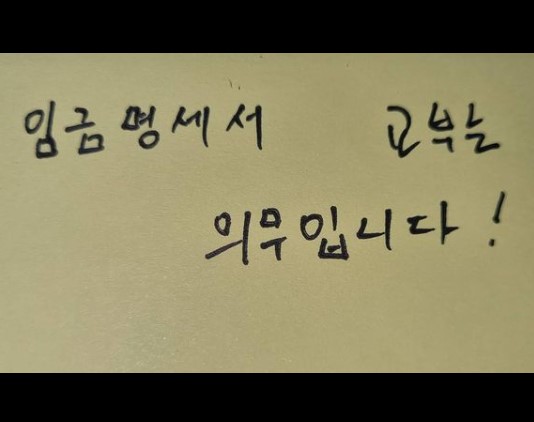 임금명세서 교부는
의무입니다!